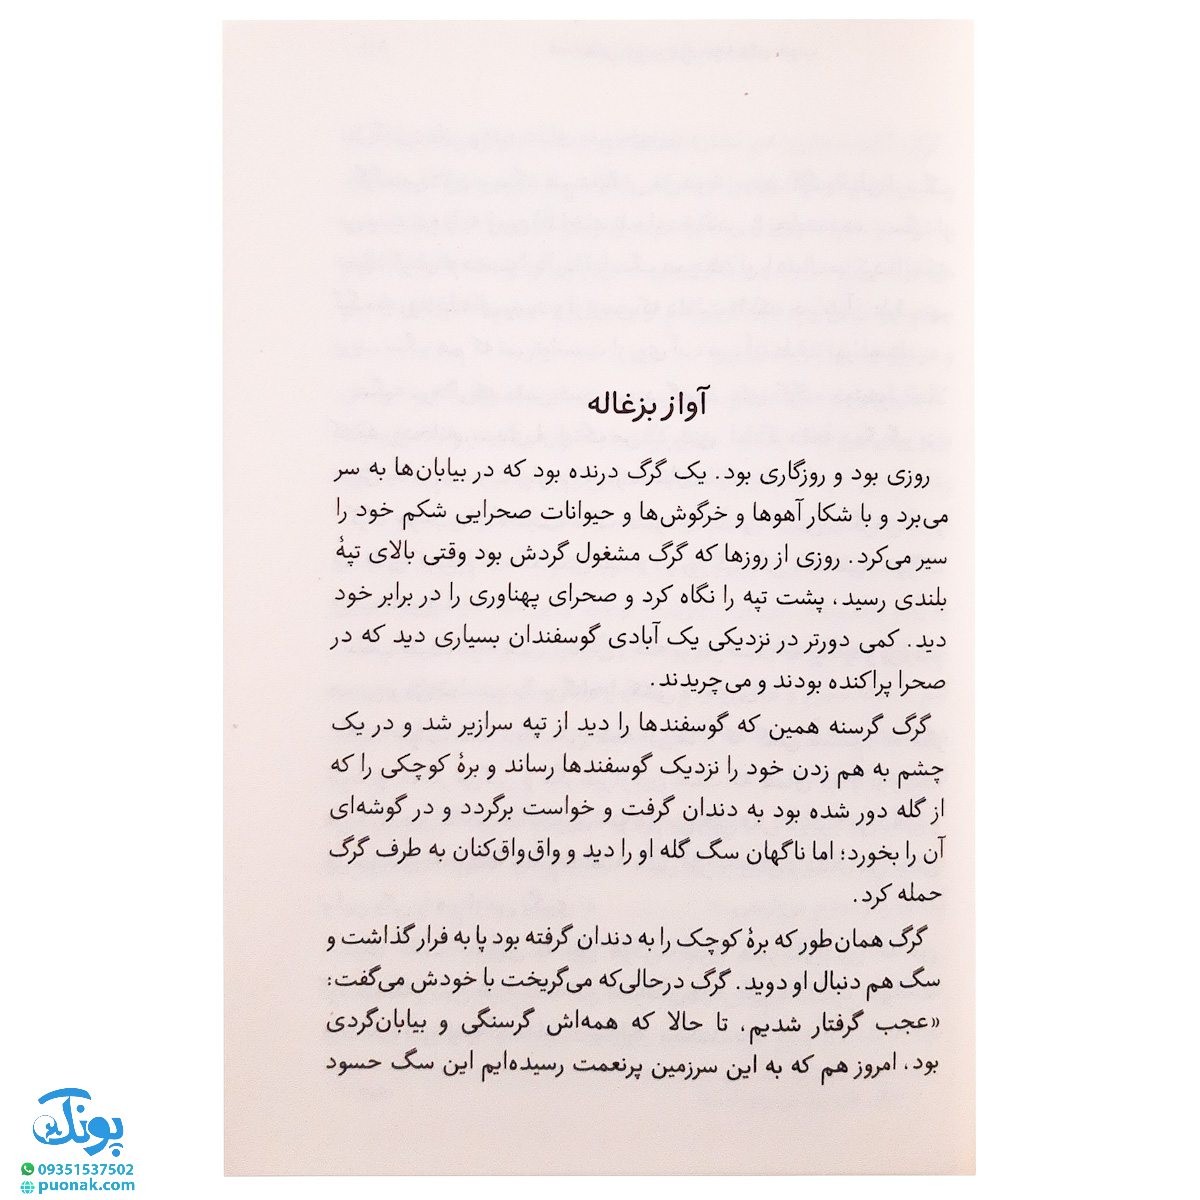 آواز بزغاله
روزی بود و روزگاری بود. یک گرگ درنده بود که در بیابان‌ها به سر
می‌برد و با شکار آهوها و خرگوش‌ها و حیوانات صحرایی شکم خود را
سیر می‌کرد. روزی از روزها که گرگ مشغول گردش بود وقتی بالای تپهٔ
بلندی رسید، پشت تپه را نگاه کرد و صحرای پهناوری را در برابر خود
دید. کمی دورتر در نزدیکی یک آبادی گوسفندان بسیاری دید که در
صحرا پراکنده بودند و می‌چریدند.
گرگ گرسنه همین که گوسفندها را دید از تپه سرازیر شد و در یک
چشم به هم زدن خود را نزدیک گوسفندها رساند و برهٔ کوچکی را که
از گله دور شده بود به دندان گرفت و خواست برگردد و در گوشه‌ای
آن را بخورد؛ اما ناگهان سگ گله او را دید و واق‌واق‌کنان به طرف گرگ
حمله کرد.
گرگ همان‌طور که برهٔ کوچک را به دندان گرفته بود پا به فرار گذاشت و
سگ هم دنبال او دوید. گرگ درحالی‌که می‌گریخت با خودش می‌گفت:
«عجب گرفتار شدیم، تا حالا که همه‌اش گرسنگی و بیابان‌گردی
بود، امروز هم که به این سرزمین پرنعمت رسیده‌ایم این سگ حسود
پونک
09351537502
puonak.com